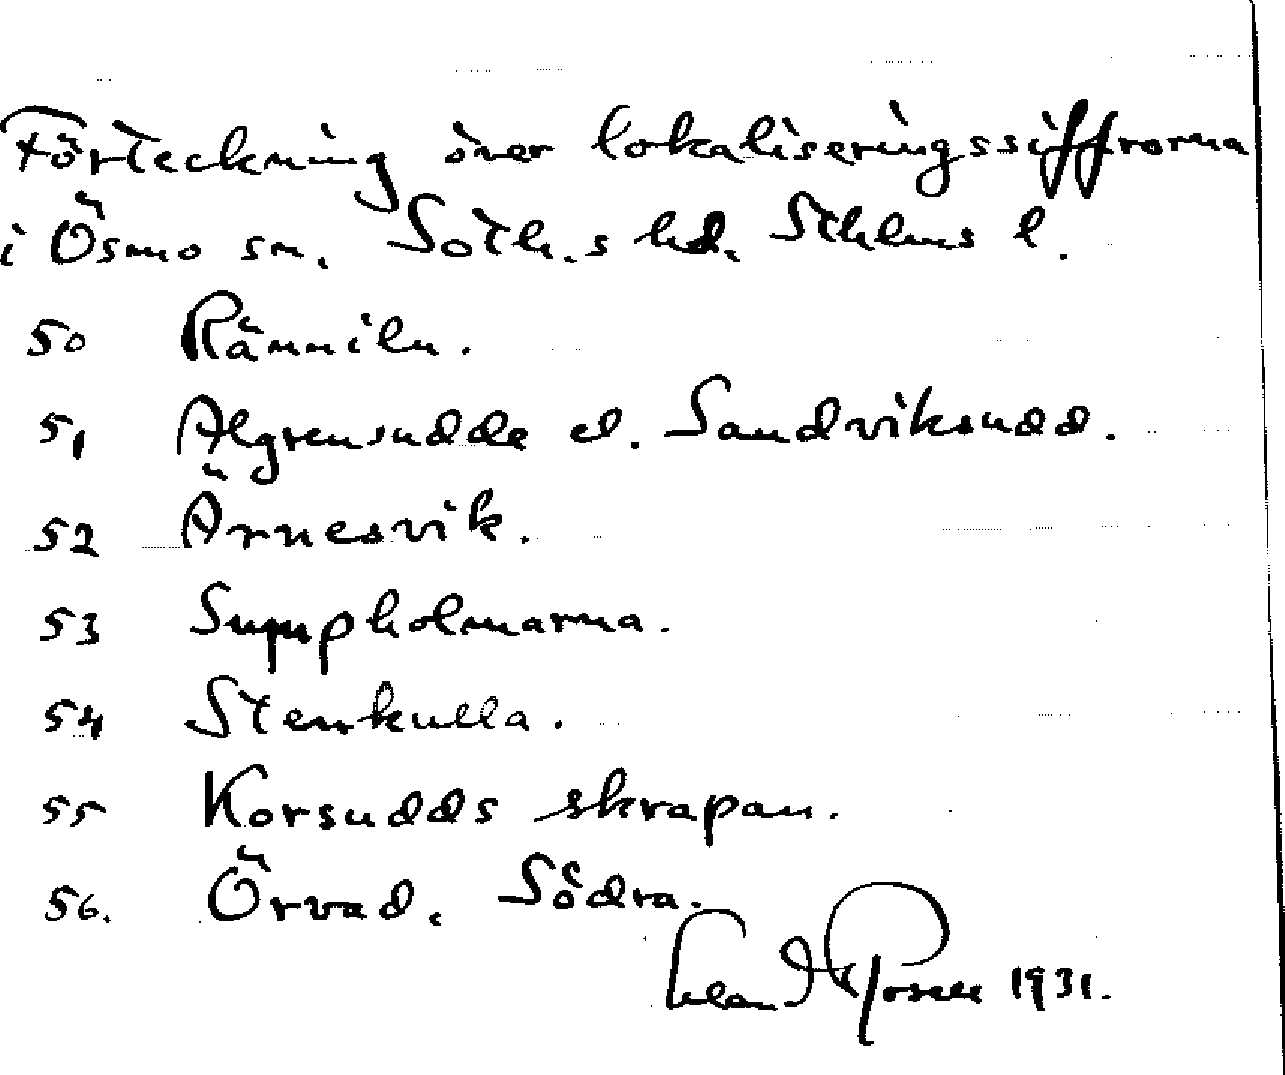 Förteckning över lokaliseringssiffrorna
i Ösmo sn. Soth.s hd. Sthlms l.
50 Ränniln.
51 Algrensudde el. Sandviksudd.
52 Ärnesvik.
53 Sumpholmarna.
54 Stenkulla.
55 Korsudds skrapan.
56. Örvad. Södra.
1931.